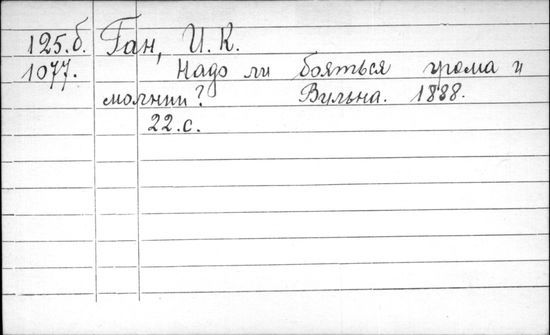 125.б. Ган, И. К.
1077. Надо ли бояться грома и
молнии? Вульна. 1888.
22.с.